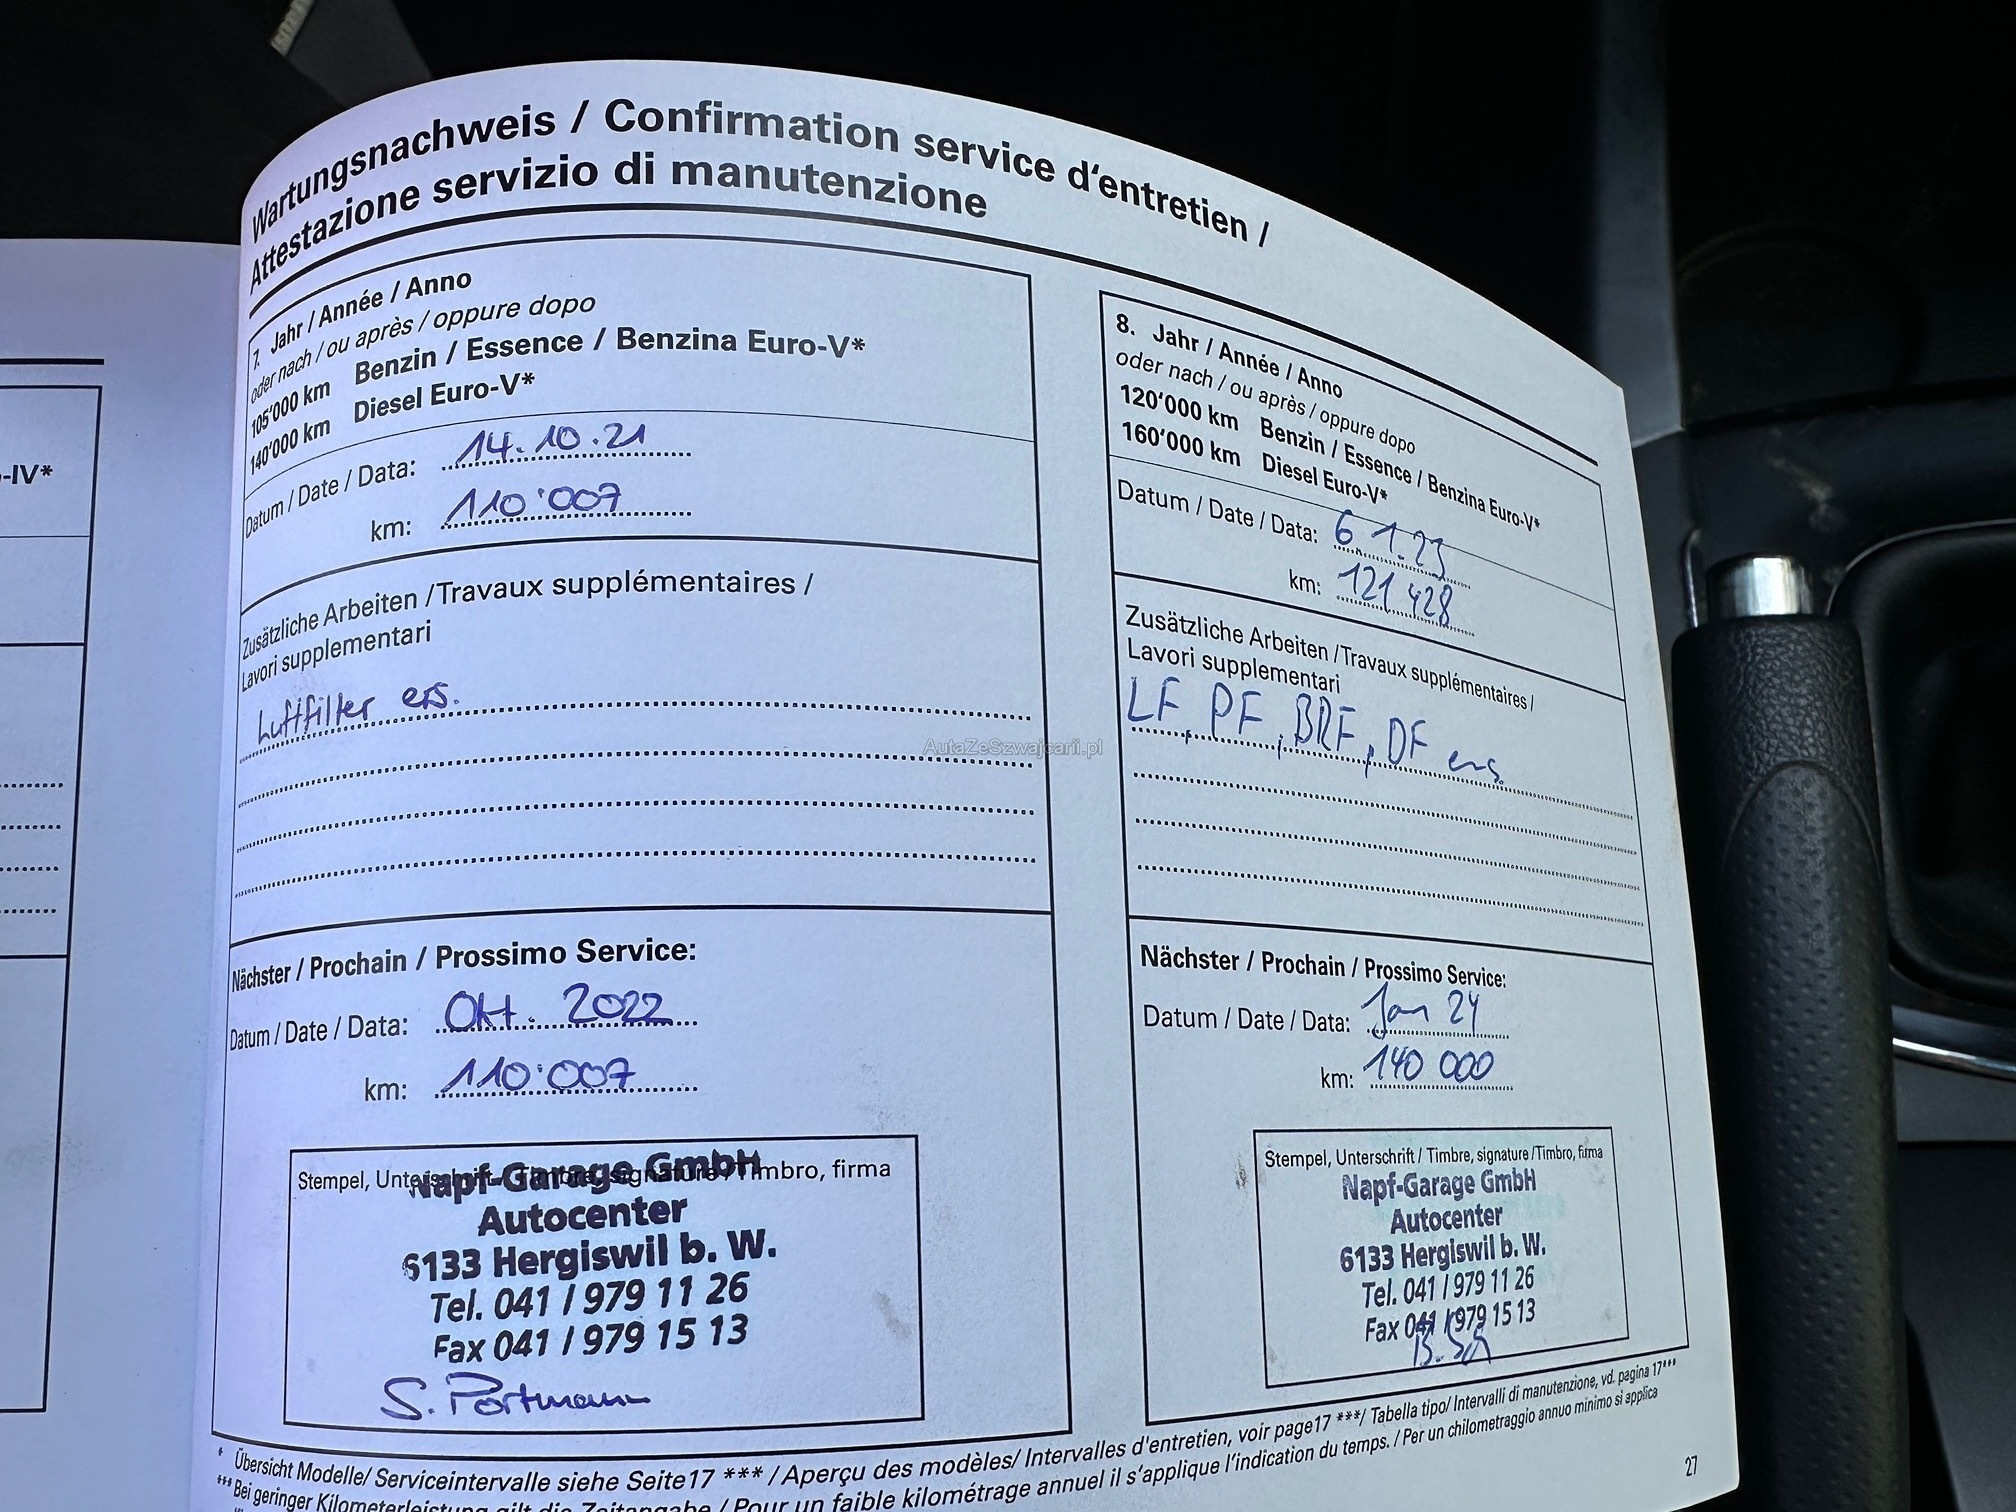 Wartungsnachweis / Confirmation service d'entretien /
Attestazione servizio di manutenzione
-IV*
7. Jahr / Année / Anno
oder nach / ou après / oppure dopo
105'000 km Benzin / Essence / Benzina Euro-V*
140'000 km Diesel Euro-V*
Datum / Date / Data: 14.10.21
km: 110'007
Zusätzliche Arbeiten / Travaux supplémentaires /
Lavori supplementari
Luftfilter ers.
Nächster / Prochain / Prossimo Service:
Datum / Date / Data: Okt. 2022
km: 110'007
Stempel, Unterschrift / Timbre, signature / Timbro, firma
Napf-Garage GmbH
Autocenter
6133 Hergiswil b. W.
Tel. 041 / 979 11 26
Fax 041 / 979 15 13
S. Portmann
8. Jahr / Année / Anno
oder nach / ou après / oppure dopo
120'000 km Benzin / Essence / Benzina Euro-V*
160'000 km Diesel Euro-V*
Datum / Date / Data: 6 1.23
km: 121 428
Zusätzliche Arbeiten / Travaux supplémentaires /
Lavori supplementari
LF, PF, BRF, DF ers.
Nächster / Prochain / Prossimo Service:
Datum / Date / Data: Jan 24
km: 140 000
Stempel, Unterschrift / Timbre, signature / Timbro, firma
Napf-Garage GmbH
Autocenter
6133 Hergiswil b. W.
Tel. 041 / 979 11 26
Fax 041 / 979 15 13
* Übersicht Modelle/ Serviceintervalle siehe Seite17 *** / Aperçu des modèles/ Intervalles d'entretien, voir page17 ***/ Tabella tipo/ Intervalli di manutenzione, vd. pagina 17***
*** Bei geringer Kilometerleistung gilt die Zeitangabe / Pour un faible kilométrage annuel il s'applique l'indication du temps. / Per un chilometraggio annuo minimo si applica
27
AutaZeSzwajcarii.pl